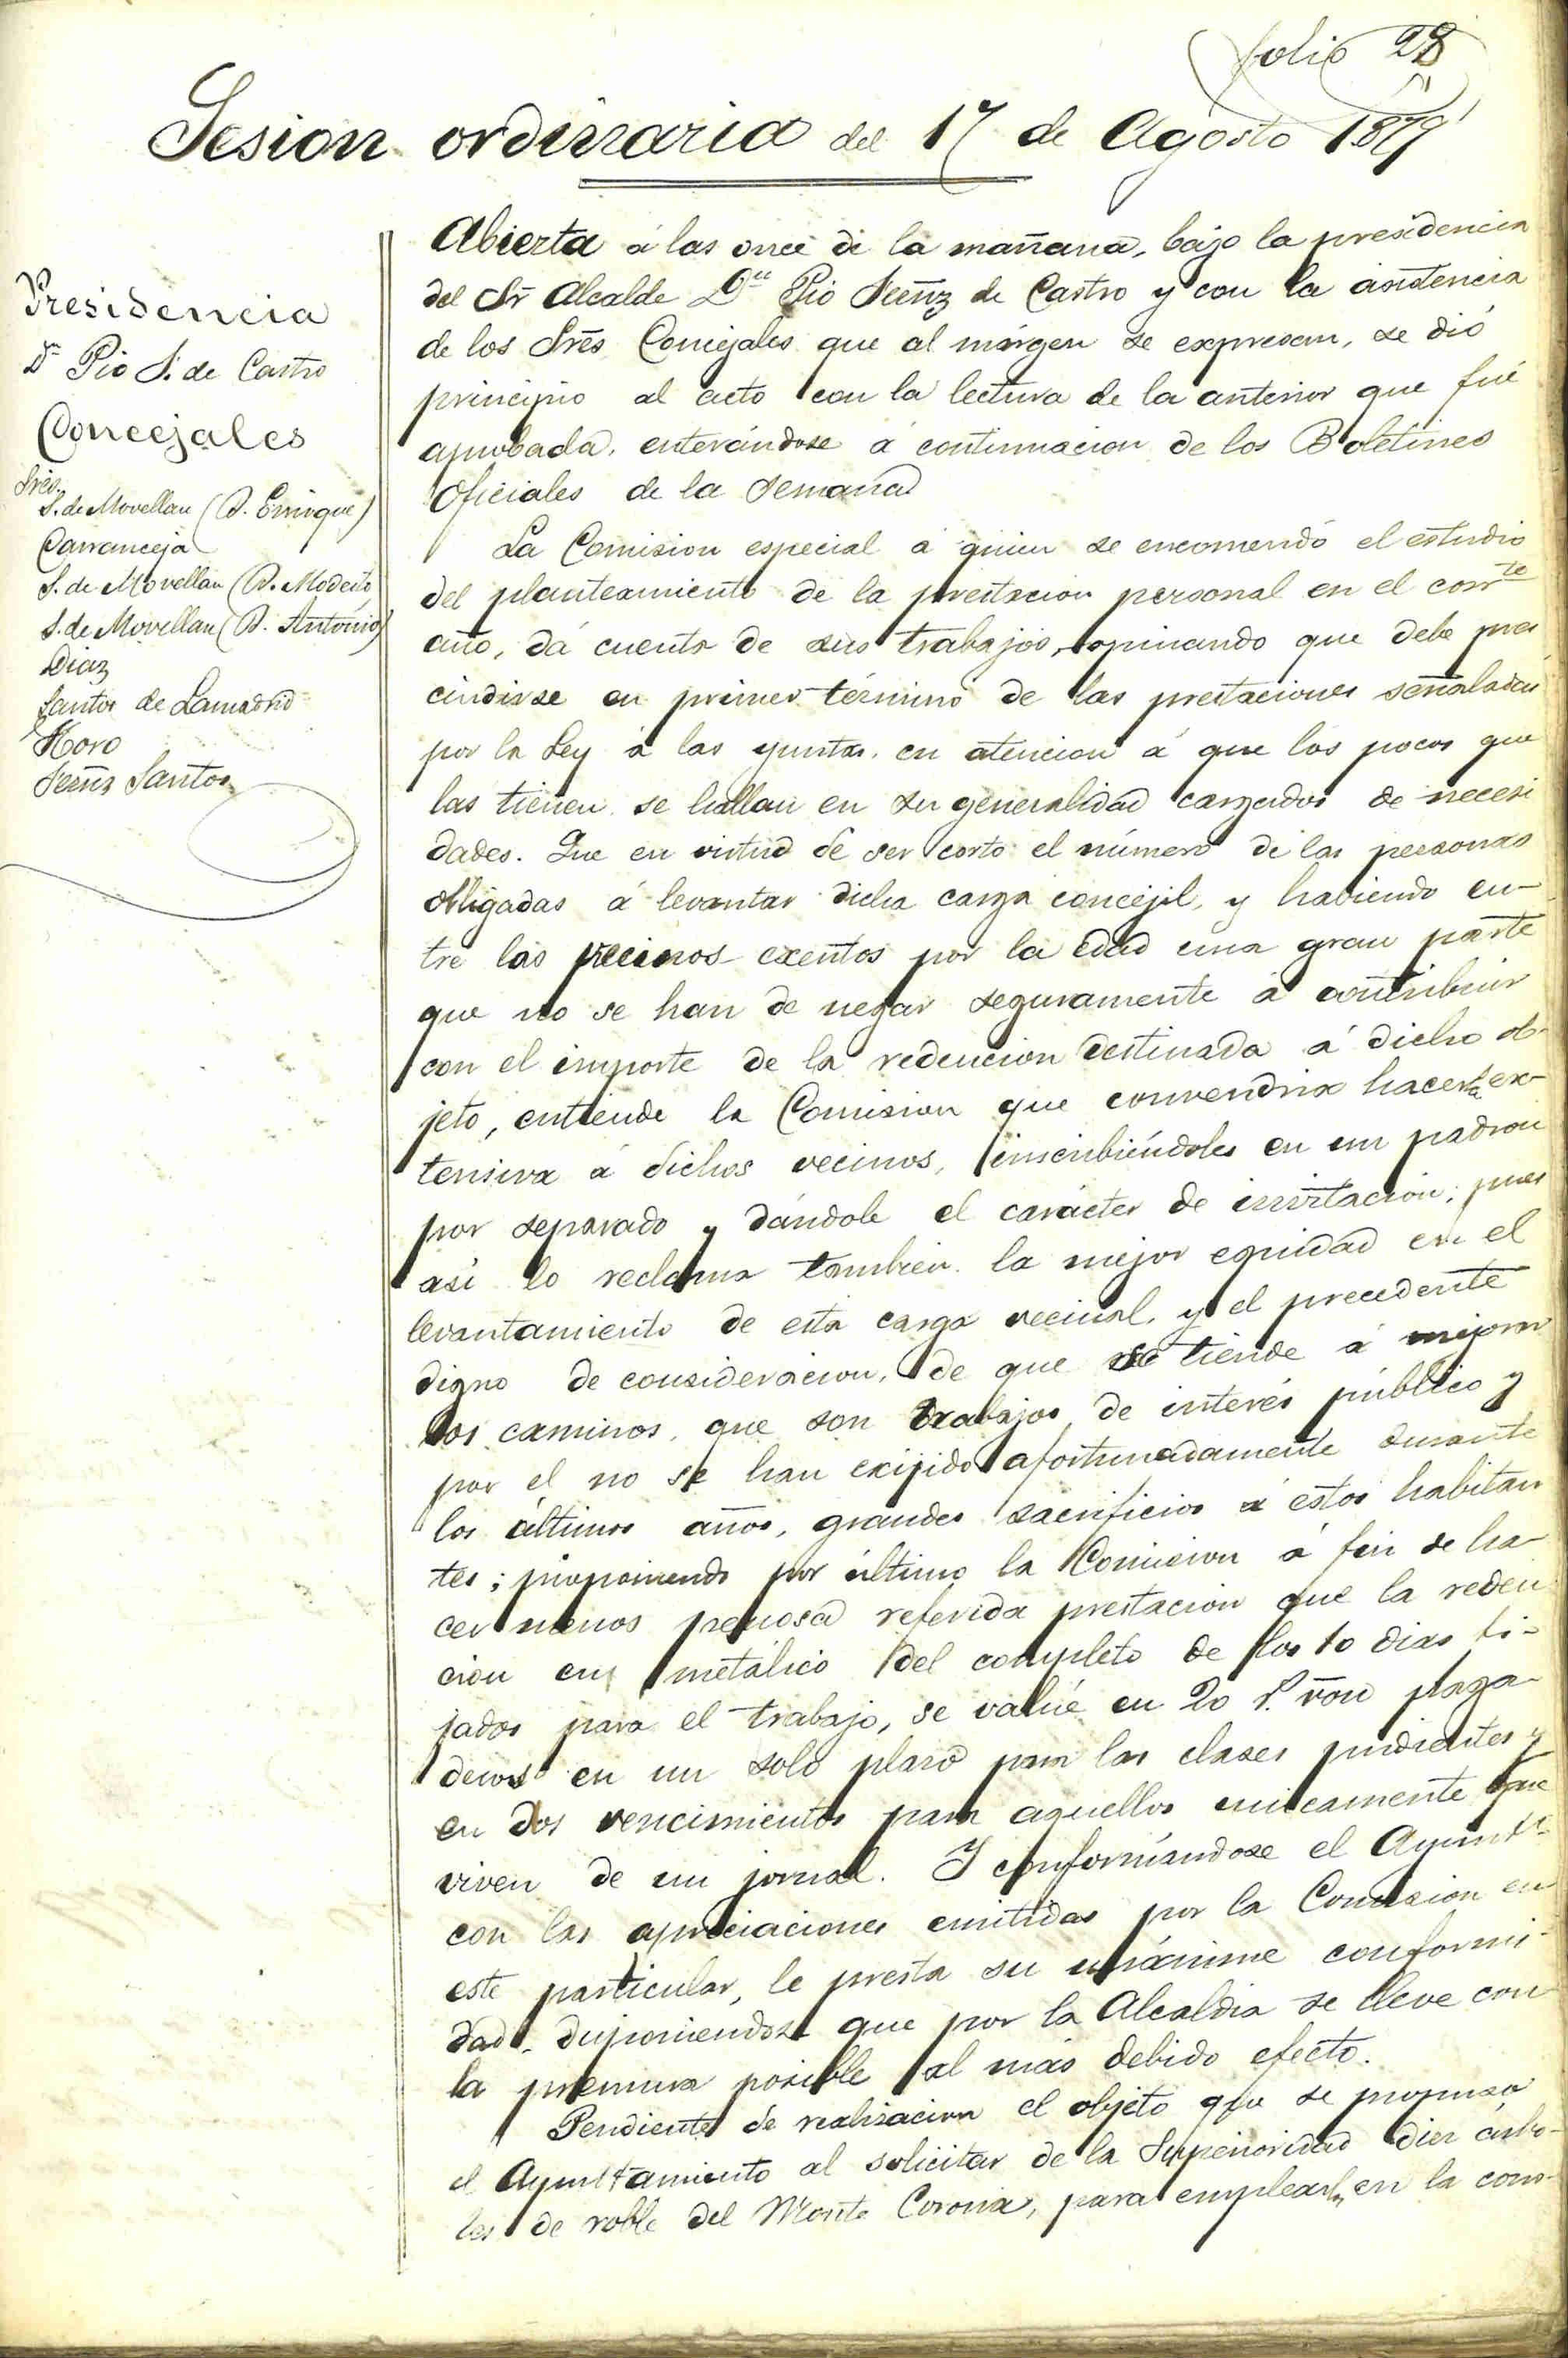 folio 28
Sesion ordinaria del 17 de Agosto 1879
Presidencia
Dn Pio S. de Castro
Concejales
Sres.
S. de Movellan (D. Enrique)
Carranceja
S. de Movellan (D. Modesto
S. de Movellan (D. Antonio)
Diaz
Santos de Lamadrid
Horo
Senz Santos
Abierta á las once de la mañana, bajo la presidencia
del Sr Alcalde Dn Pio Senz de Castro y con la asistencia
de los Sres Concejales que al márgen se expresan, se dió
principio al acto con la lectura de la anterior que fué
aprobada, enterándose á continuacion de los Boletines
Oficiales de la semana
La Comision especial á quien se encomendó el estudio
del planteamiento de la prestacion personal en el corrte
año, dá cuenta de sus trabajos, opinando que debe pres
cindirse en primer término de las prestaciones señaladas
por la Ley á las yuntas, en atencion á que los pocos que
las tienen, se hallan en su generalidad cargados de necesi
dades. Que en virtud de ser corto el número de las personas
obligadas á levantar dicha carga concejil, y habiendo en-
tre los vecinos exentos por la edad una gran parte
que no se han de negar seguramente á contribuir
con el importe de la redencion destinada á dicho ob-
jeto, entiende la Comision que convendria hacerla ex-
tensiva á dichos vecinos, inscribiéndoles en un padron
por separado y dándole el carácter de invitacion; pues
asi lo reclama tambien la mejor equidad en el
levantamiento de esta carga vecinal, y el precedente
digno de consideracion, de que se tiende á mejorar
los caminos, que son trabajos de interés público y
por el no se han exijido afortunadamente durante
los últimos años, grandes sacrificios á estos habitan
tes; proponiendo por último la Comision á fin de ha-
cer menos penosa referida prestacion que la reden
cion en metálico del completo de los 10 dias fi-
jados para el trabajo, se valúe en 20 r. von paga-
deros en un solo plazo para las clases pudientes y
en dos vencimientos para aquellos unicamente que
viven de un jornal. Y conformándose el Ayuntto
con las apreciaciones emitidas por la Comision en
este particular, le presta su unánime conformi-
dad, disponiendose que por la Alcaldia se lleve con
la premura posible al más debido efecto.
Pendiente de realizacion el objeto que se propuso
el Ayuntamiento al solicitar de la Superioridad diez árbo-
les de roble del Monte Corona, para emplearlos en la cons-